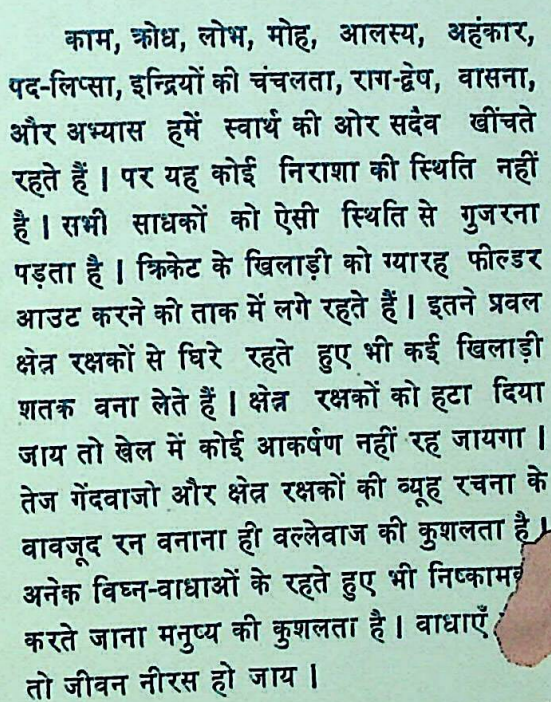 काम, क्रोध, लोभ, मोह, आलस्य, अहंकार,
पद-लिप्सा, इन्द्रियों की चंचलता, राग-द्वेष, वासना,
और अभ्यास हमें स्वार्थ की ओर सदैव खींचते
रहते हैं । पर यह कोई निराशा की स्थिति नहीं
है । सभी साधकों को ऐसी स्थिति से गुजरना
पड़ता है । क्रिकेट के खिलाड़ी को ग्यारह फील्डर
आउट करने की ताक में लगे रहते हैं । इतने प्रवल
क्षेत्र रक्षकों से घिरे रहते हुए भी कई खिलाड़ी
शतक वना लेते हैं । क्षेत्र रक्षकों को हटा दिया
जाय तो खेल में कोई आकर्षण नहीं रह जायगा ।
तेज गेंदवाजो और क्षेत्र रक्षकों की व्यूह रचना के
वावजूद रन वनाना ही वल्लेवाज की कुशलता है ।
अनेक विघ्न-वाधाओं के रहते हुए भी निष्काम
करते जाना मनुष्य की कुशलता है । वाधाएँ
तो जीवन नीरस हो जाय ।